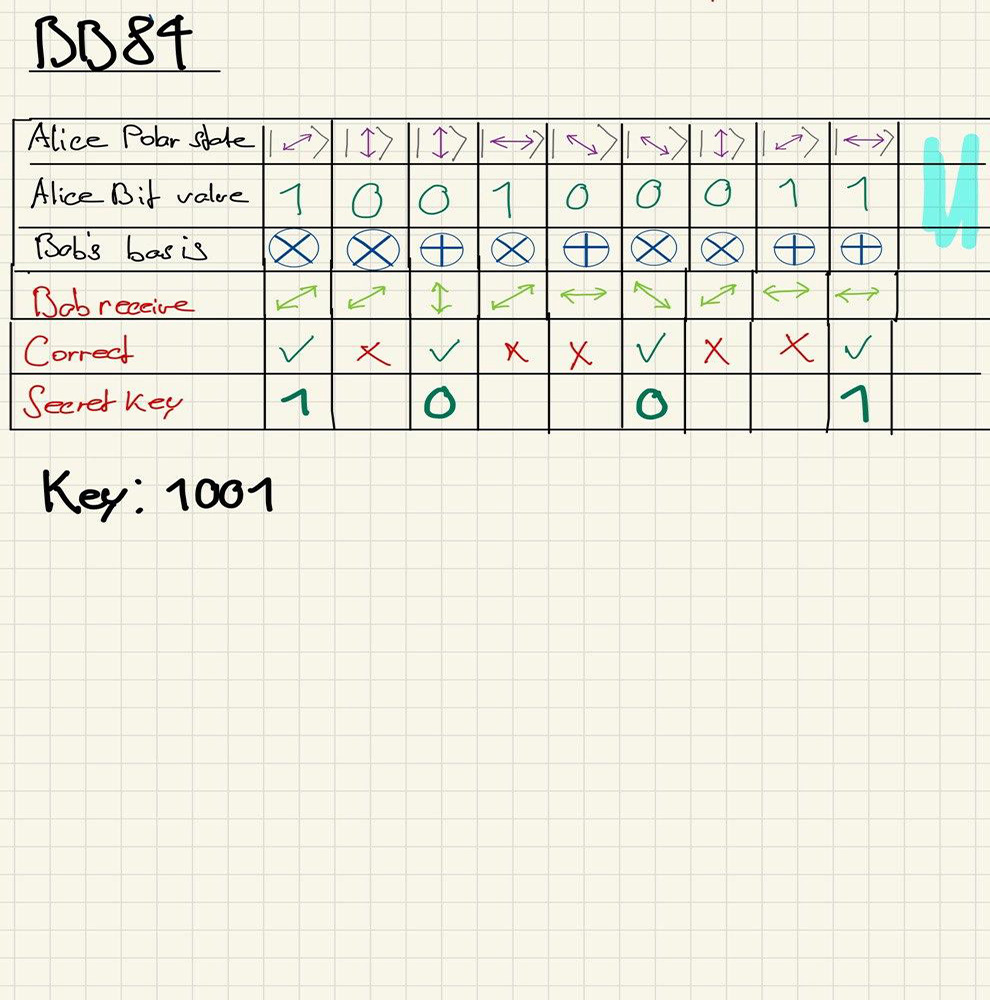 BB84
Alice Polar state |⤢⟩ |↕⟩ |↕⟩ |↔⟩ |⤡⟩ |⤡⟩ |↕⟩ |⤢⟩ |↔⟩
Alice Bit value 1 0 0 1 0 0 0 1 1
Bob's basis ⊗ ⊗ ⊕ ⊗ ⊕ ⊗ ⊗ ⊕ ⊕
Bob receive ⤢ ⤢ ↕ ⤢ ↔ ⤡ ⤢ ↔ ↔
Correct ✓ ✗ ✓ ✗ ✗ ✓ ✗ ✗ ✓
Secret Key 1 0 0 1
Key: 1001